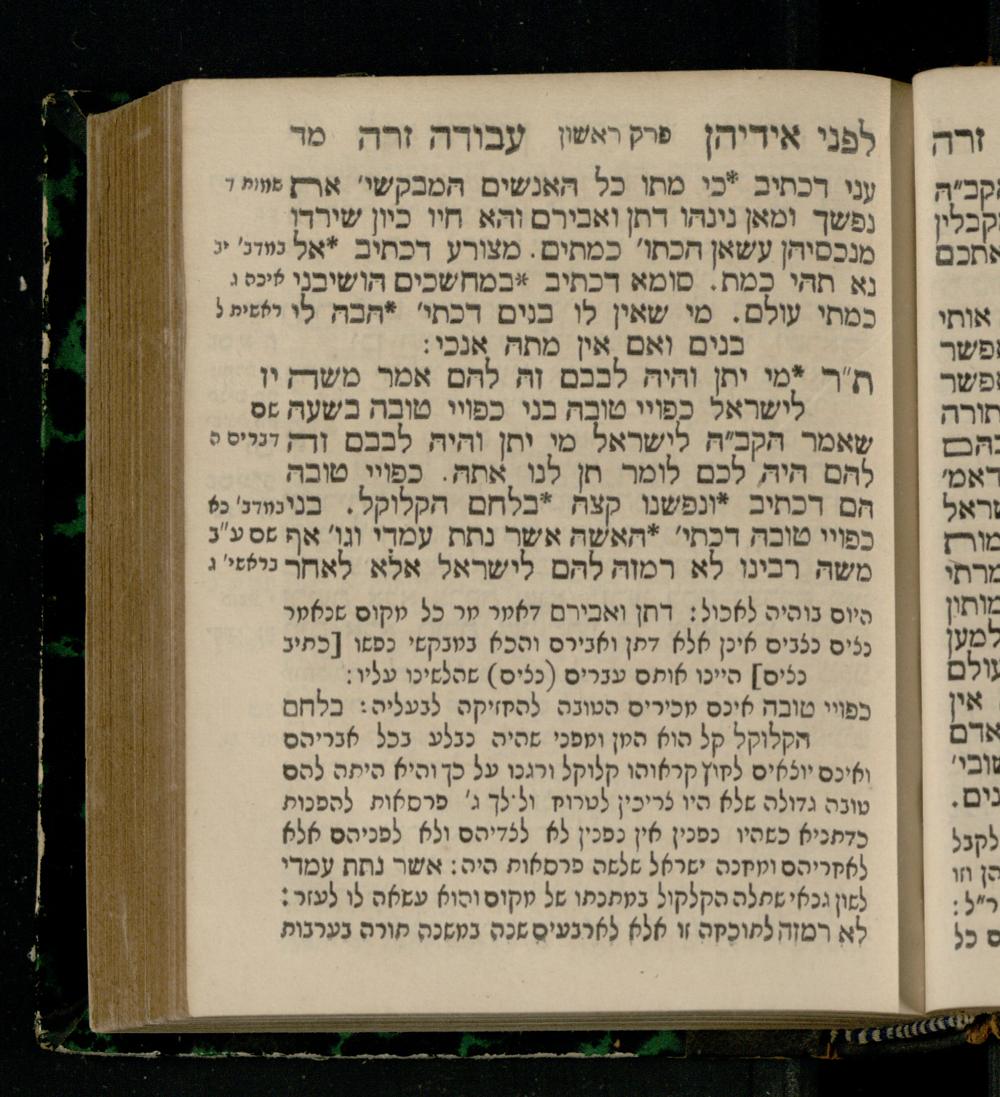 לפני אידיהן פרק ראשון עבודה זרה מד
עני דכתיב *כי מתו כל האנשים המבקשי׳ את שמות ד
נפשך ומאן נינהו דתן ואבירם והא חיו כיון שירדו
מנכסיהן עשאן הכתו׳ כמתים. מצורע דכתיב *אל במדב׳ יב
נא תהי כמת. סומא דכתיב *במחשכים הושיבני איכה ג
כמתי עולם. מי שאין לו בנים דכתי׳ *הבה לי ראשית ל
בנים ואם אין מתה אנכי:
ת״ר *מי יתן והיה לבבם זה להם אמר משה יז
לישראל כפויי טובה בני כפויי טובה בשעה שם
שאמר הקב״ה לישראל מי יתן והיה לבבם זה דברים ה
להם היה לכם לומר תן לנו אתה. כפויי טובה
הם דכתיב *ונפשנו קצה *בלחם הקלוקל. בני במדב׳ כא
כפויי טובה דכתי׳ *האשה אשר נתת עמדי וגו׳ אף שם ע״ב
משה רבינו לא רמזה להם לישראל אלא לאחר בראשי׳ ג
היום בוהיה לאכול: דתן ואבירם דאמר מר כל מקום שנאמר
נצים נצבים אינן אלא דתן ואבירם והכא במבקשי נפשו [כתיב
נצים] היינו אותם עברים (נצים) שהלשינו עליו:
כפויי טובה אינם מכירים הטובה להחזיקה לבעליה: בלחם
הקלוקל קל הוא המן ומפני שהיה נבלע בכל אבריהם
ואינם יוצאים לחוץ קראוהו קלוקל ורגנו על כך והיא היתה להם
טובה גדולה שלא היו צריכין לטרוח ולילך ג׳ פרסאות להפנות
כדתניא כשהיו נפנין אין נפנין לא לצדיהם ולא לפניהם אלא
לאחריהם ומחנה ישראל שלשה פרסאות היה: אשר נתת עמדי
לשון גנאי שתלה הקלקול במתנתו של מקום והוא עשאה לו לעזר:
לא רמזה לתוכחה זו אלא לארבעים שנה במשנה תורה בערבות
זרה
הקב״ה
אתכם
אותי
תורה
דאמ׳
מותון
למען
עולם
אין
אדם
לקבל
הן וזו
ר״ל:
ס כל